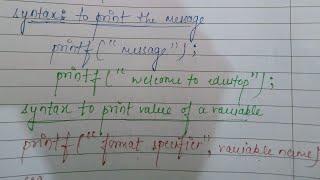 syntax: to print the message
printf("message");
printf("welcome to edutop");
syntax to print value of a variable
printf("format specifier", variable name)